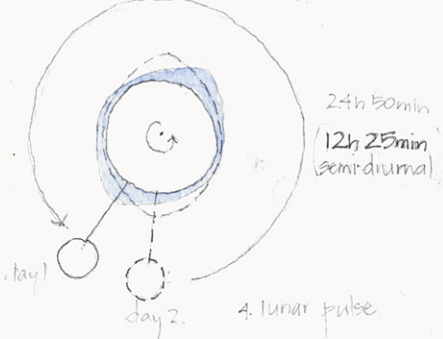 24h 50min
(12h 25min
semi-diurnal)
day 1
day 2.
4. lunar pulse